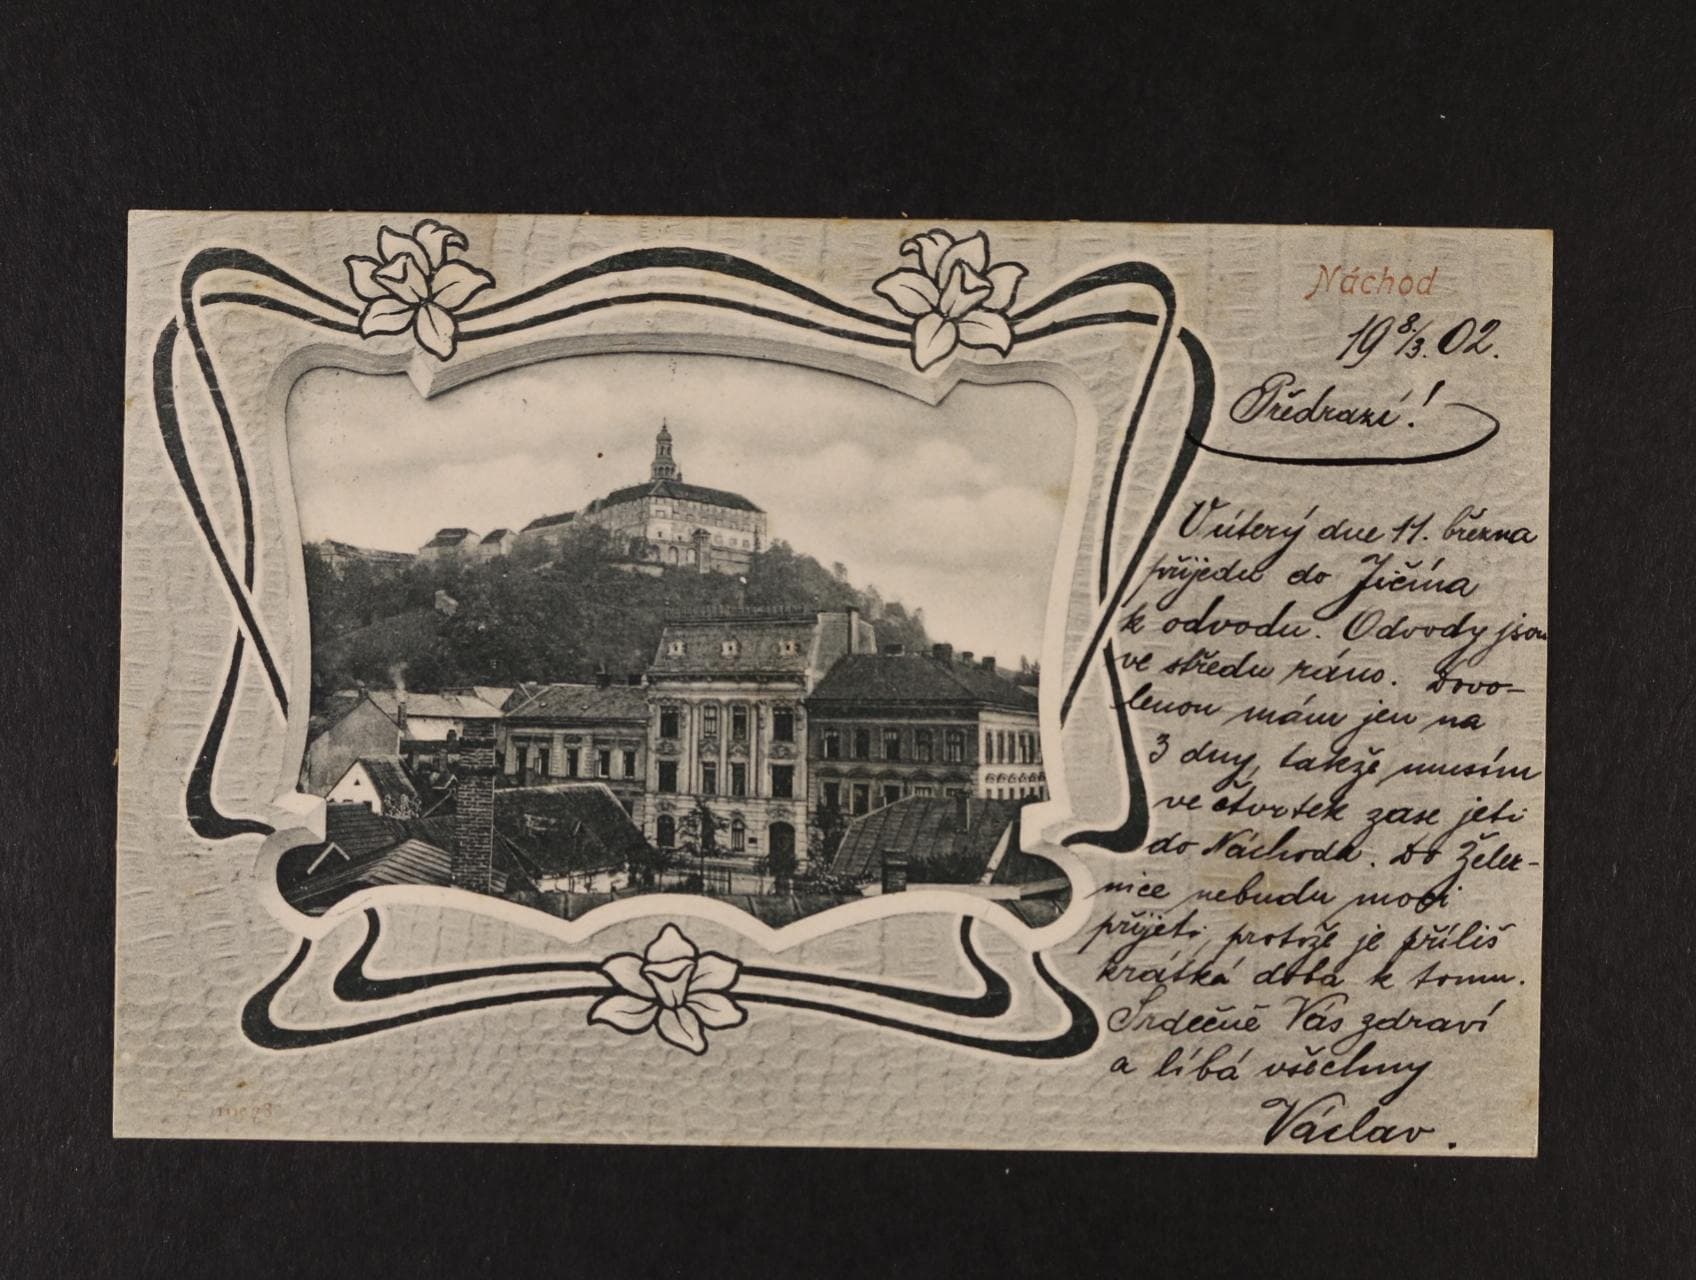 Náchod
19 8./3. 02.
Předrazí!
V úterý dne 11. března
přijedu do Jičína
k odvodu. Odvody jsou
ve středu ráno. Dovo-
lenou mám jen na
3 dny, takže musím
ve čtvrtek zase jeti
do Náchoda. Do Želez-
nice nebudu moci
přijeti, protože je příliš
krátká doba k tomu.
Srdečně Vás zdraví
a líbá všechny
Václav.